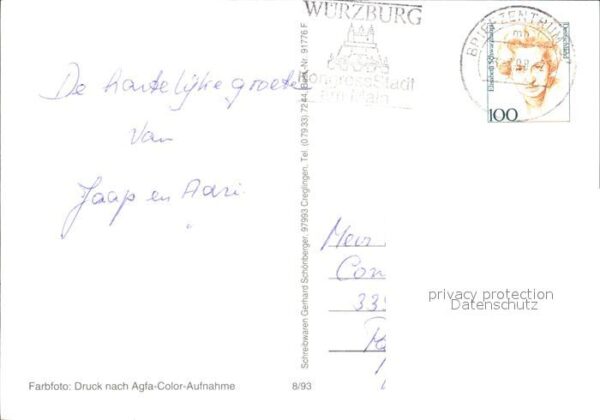 WÜRZBURG
Kongressstadt
am Main
BRIEFZENTRUM
mb
Deutschland
Elisabeth Schwarzhaupt
100
De hartelijke groeten
van
Jaap en Adri.
Schreibwaren Gerhard Schönberger, 97993 Creglingen, Tel. (0 79 33) 7244, Best.-Nr. 91776 F
Con
335
privacy protection
Datenschutz
Farbfoto: Druck nach Agfa-Color-Aufnahme
8/93